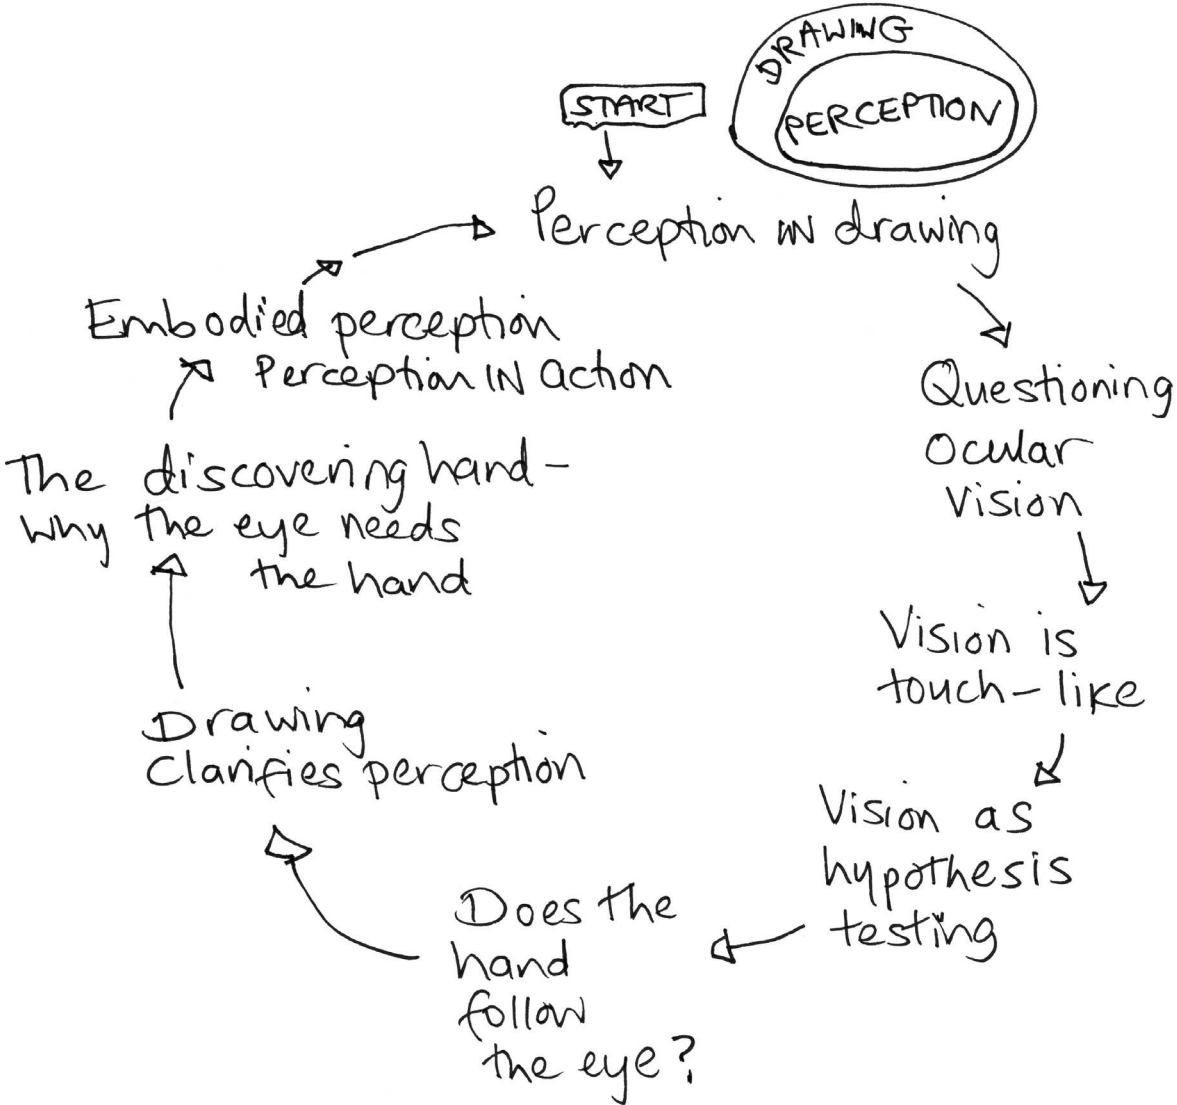 DRAWING
PERCEPTION
START
Perception IN drawing
Questioning
Ocular
Vision
Vision is
touch-like
Vision as
hypothesis
testing
Does the
hand
follow
the eye?
Drawing
Clarifies perception
The discovering hand-
Why the eye needs
the hand
Embodied perception
Perception IN action